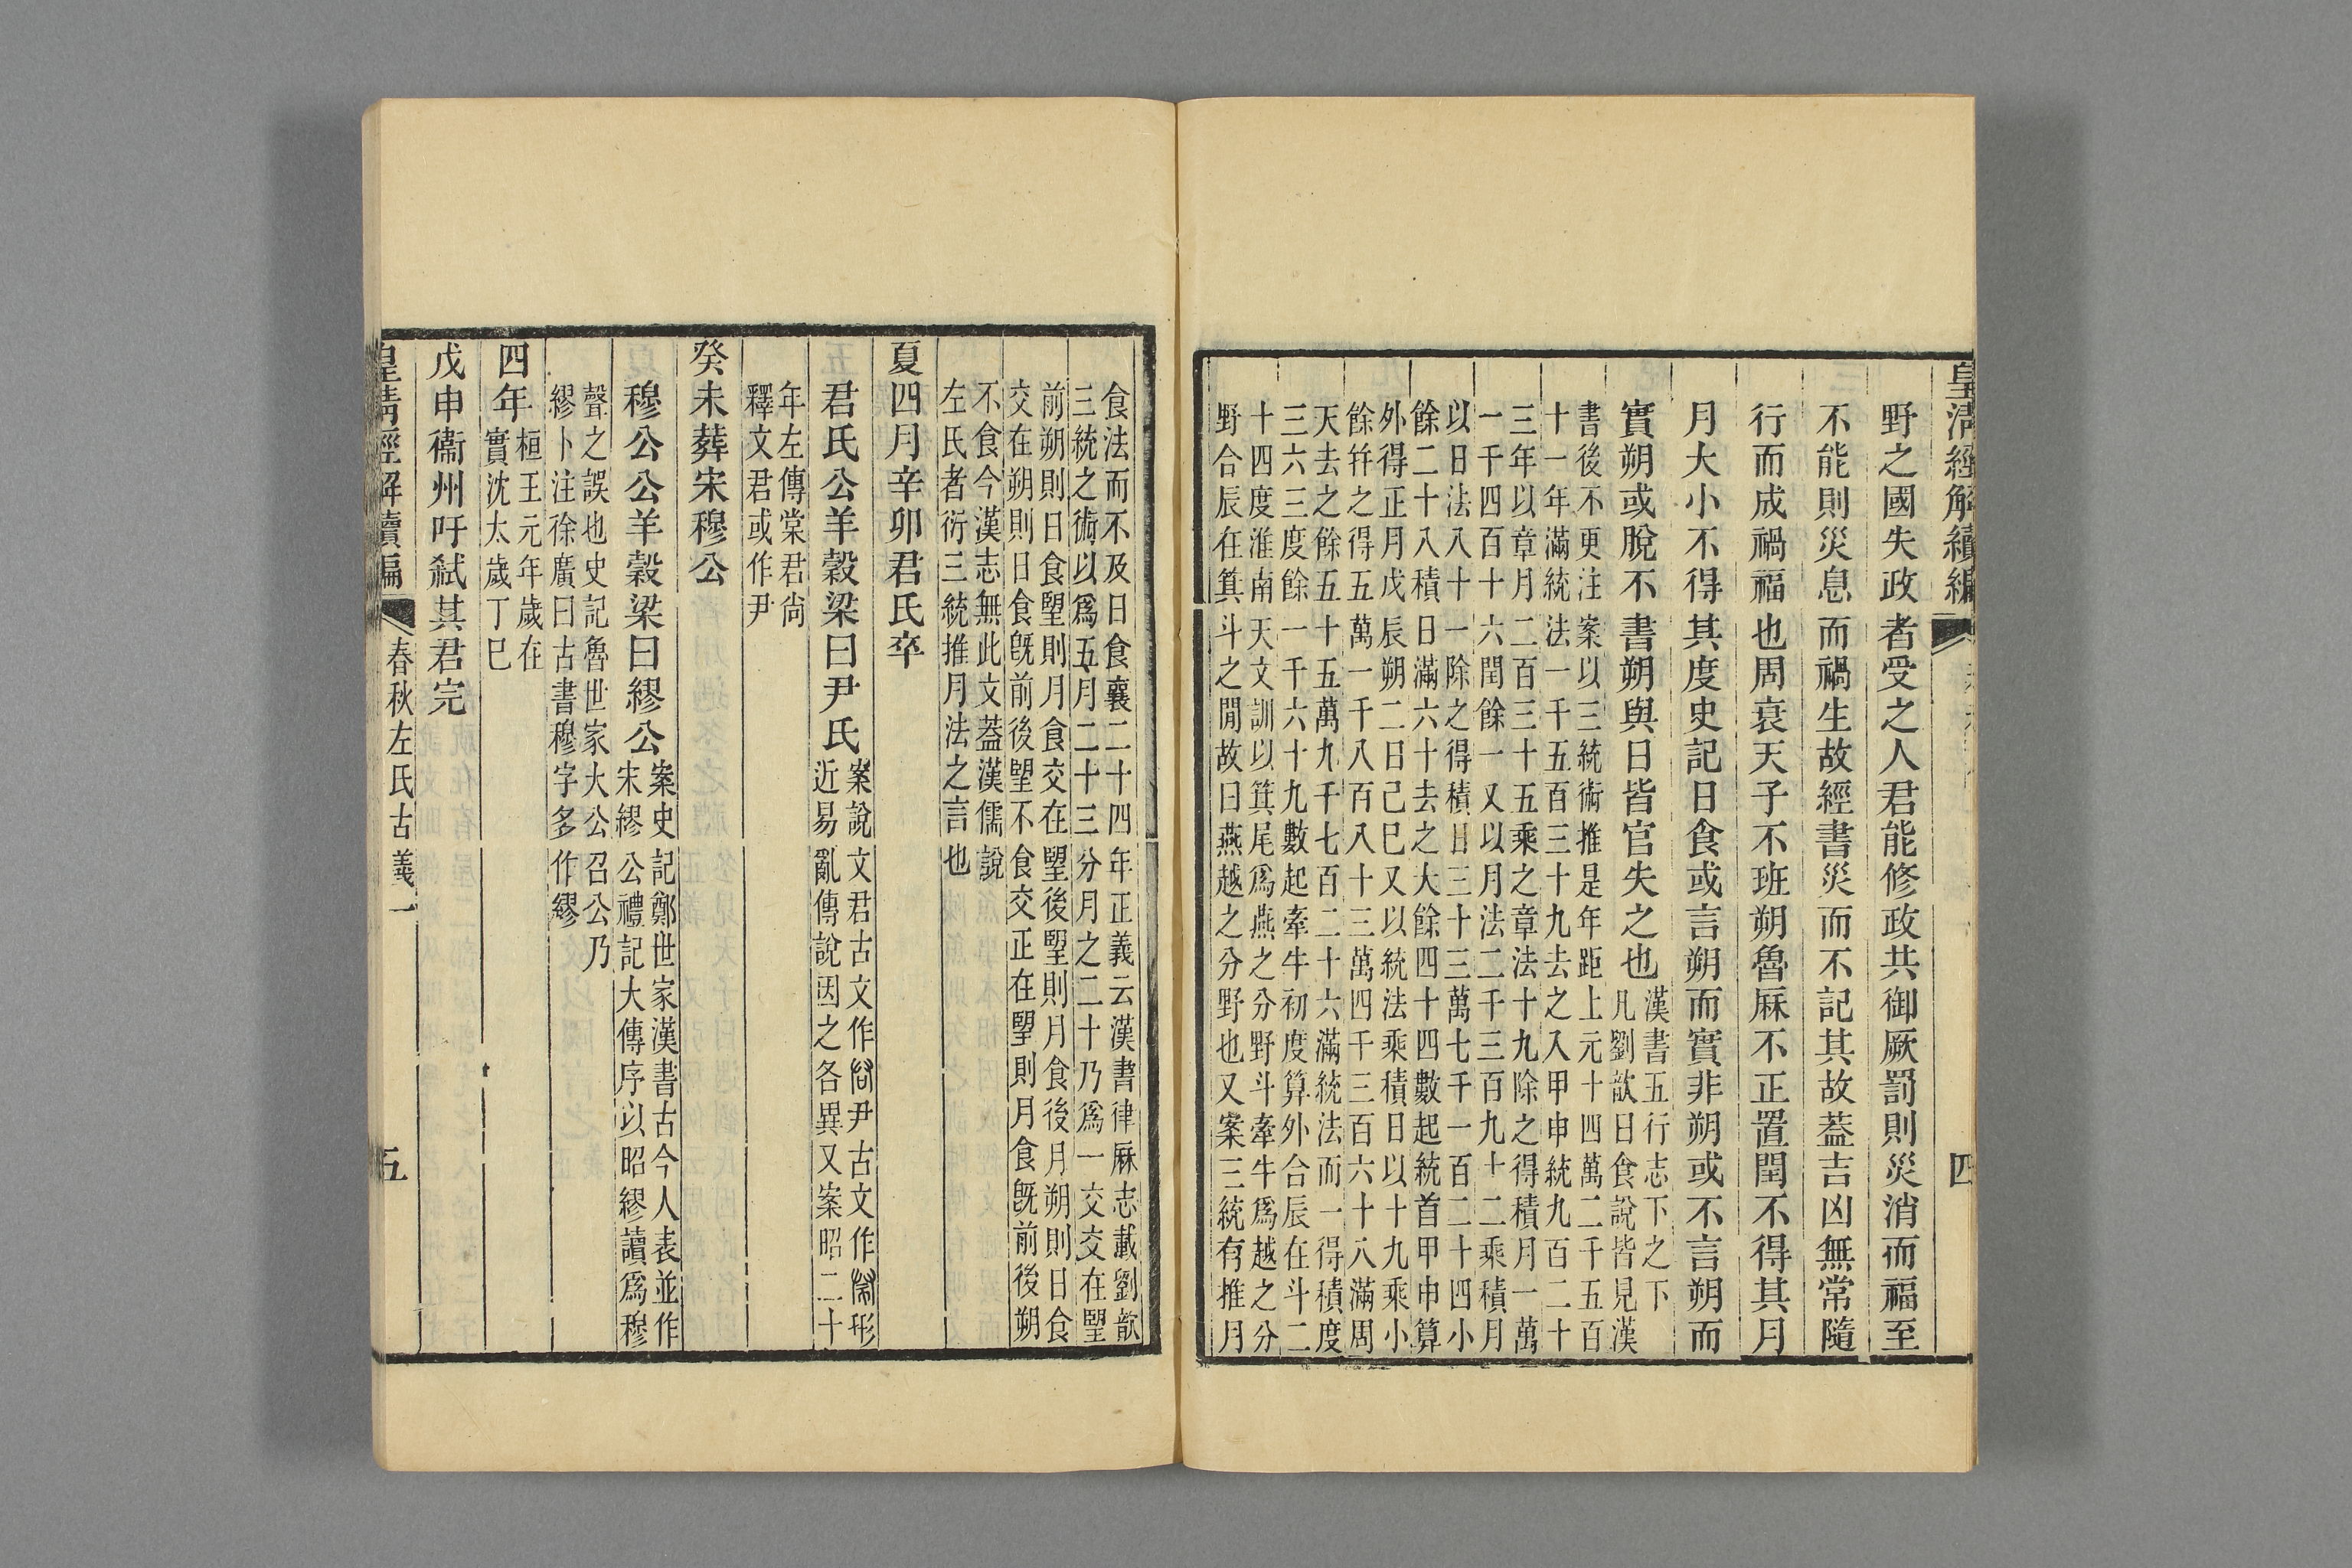 皇清經解續編
四
野之國失政者受之人君能修政共御厥罰則災消而福至
不能則災息而禍生故經書災而不記其故蓋吉凶無常隨
行而成禍福也周衰天子不班朔魯厤不正置閏不得其月
月大小不得其度史記日食或言朔而實非朔或不言朔而
實朔或脫不書朔與日皆官失之也
漢書五行志下之下
凡劉歆日食說皆見漢
書後不更注案以三統術推是年距上元十四萬二千五百
十一年滿統法一千五百三十九去之入甲申統九百二十
三年以章月二百三十五乘之章法十九除之得積月一萬
一千四百十六閏餘一又以月法二千三百九十二乘積月
以日法八十一除之得積日三十三萬七千一百二十四小
餘二十八積日滿六十去之大餘四十四數起統首甲申算
外得正月戊辰朔二日己巳又以統法乘積日以十九乘小
餘幷之得五萬一千八百八十三萬四千三百六十八滿周
天去之餘五十五萬九千七百二十六滿統法而一得積度
三六三度餘一千六十九數起牽牛初度算外合辰在斗二
十四度淮南天文訓以箕尾爲燕之分野斗牽牛爲越之分
野合辰在箕斗之閒故曰燕越之分野也又案三統有推月
食法而不及日食襄二十四年正義云漢書律厤志載劉歆
三統之術以爲五月二十三分月之二十乃爲一交交在望
前朔則日食望則月食交在望後望則月食後月朔則日食
交在朔則日食旣前後望不食交正在望則月食旣前後朔
不食今漢志無此文蓋漢儒說
左氏者衍三統推月法之言也
夏四月辛卯君氏卒
君氏公羊穀梁曰尹氏
案說文君古文作𠱭尹古文作𡱺形
近易亂傳說因之各異又案昭二十
年左傳棠君尙
釋文君或作尹
癸未葬宋穆公
穆公公羊穀梁曰繆公
案史記鄭世家漢書古今人表並作
宋繆公禮記大傳序以昭繆讀爲穆
聲之誤也史記魯世家大公召公乃
繆卜注徐廣曰古書穆字多作繆
四年
桓王元年歲在
實沈太歲丁巳
戊申衞州吁弑其君完
皇清經解續編
春秋左氏古義一
五